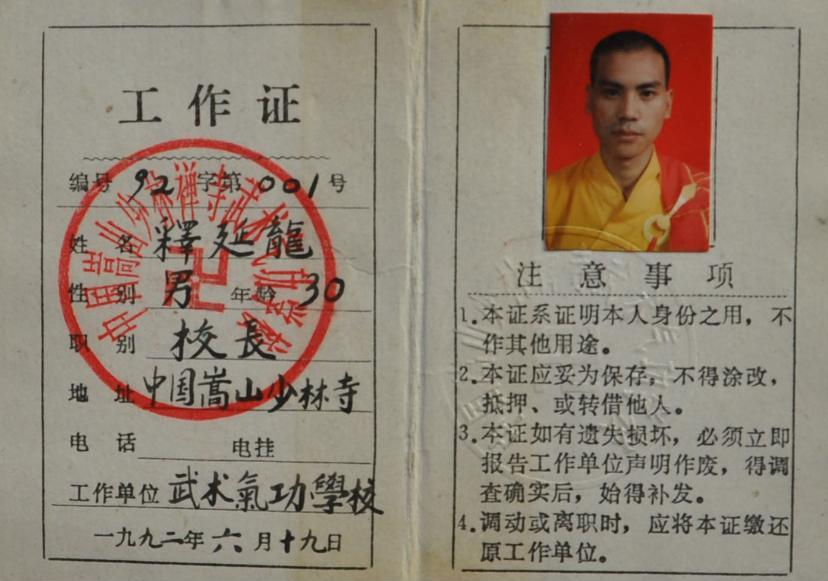 工作证
编号92字第001号
姓名 釋延龍
性别 男 年龄 30
职别 校長
地址 中国嵩山少林寺
电话 电挂
工作单位 武术氣功學校
一九九二年六月十九日
注意事项
1.本证系证明本人身份之用，不
作其他用途。
2.本证应妥为保存，不得涂改，
抵押、或转借他人。
3.本证如有遗失损坏，必须立即
报告工作单位声明作废，得调
查确实后，始得补发。
4.调动或离职时，应将本证缴还
原工作单位。